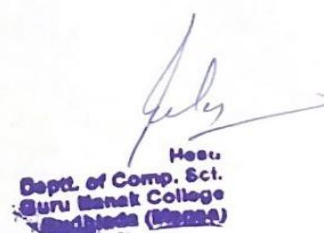 Head
Deptt. of Comp. Sci.
Guru Nanak College
Budhlada (Mansa)